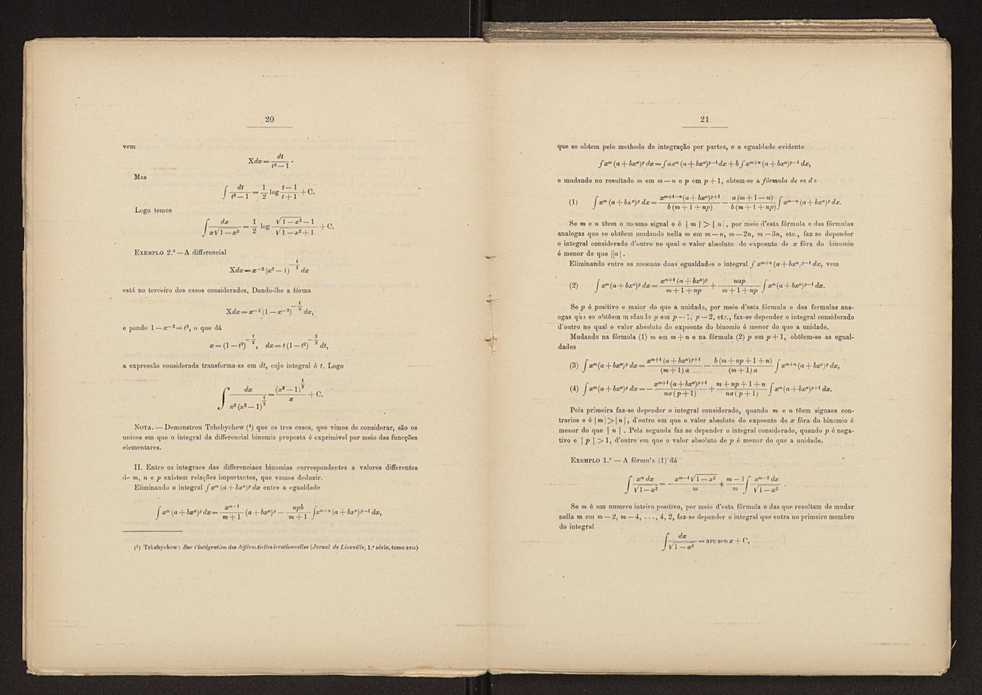 20
vem
Xdx = dt/(t² − 1).
Mas
∫ dt/(t² − 1) = 1/2 log (t − 1)/(t + 1) + C.
Logo temos
∫ dx/(x√(1 − x²)) = 1/2 log (√(1 − x²) − 1)/(√(1 − x²) + 1) + C.
EXEMPLO 2.º — A differencial
Xdx = x⁻² (x² − 1)^(−1/2) dx
está no terceiro dos casos considerados. Dando-lhe a fórma
Xdx = x⁻³ (1 − x⁻²)^(−1/2) dx,
e pondo 1 − x⁻² = t², o que dá
x = (1 − t²)^(−1/2), dx = t (1 − t²)^(−3/2) dt,
a expressão considerada transforma-se em dt, cujo integral é t. Logo
∫ dx/(x² (x² − 1)^(1/2)) = (x² − 1)^(1/2)/x + C.
NOTA. — Demonstrou Tchebychew (¹) que os tres casos, que vimos de considerar, são os
unicos em que o integral da differencial binomia proposta é exprimivel por meio das funcções
elementares.
II. Entre os integraes das differenciaes binomias correspondentes a valores differentes
de m, n e p existem relações importantes, que vamos deduzir.
Eliminando o integral ∫ xᵐ (a + bxⁿ)ᵖ dx entre a egualdade
∫ xᵐ (a + bxⁿ)ᵖ dx = xᵐ⁺¹/(m + 1) (a + bxⁿ)ᵖ − npb/(m + 1) ∫ xᵐ⁺ⁿ (a + bxⁿ)ᵖ⁻¹ dx,
(¹) Tchebychew: Sur l'intégration des différentielles irrationnelles (Jornal de Liouville, 1.ª série, tomo XVIII)
21
que se obtem pelo methodo de integração por partes, e a egualdade evidente
∫ xᵐ (a + bxⁿ)ᵖ dx = ∫ axᵐ (a + bxⁿ)ᵖ⁻¹ dx + b ∫ xᵐ⁺ⁿ (a + bxⁿ)ᵖ⁻¹ dx,
e mudando no resultado m em m − n e p em p + 1, obtem-se a fórmula de
(1) ∫ xᵐ (a + bxⁿ)ᵖ dx = xᵐ⁺¹⁻ⁿ (a + bxⁿ)ᵖ⁺¹/(b (m + 1 + np)) − a (m + 1 − n)/(b (m + 1 + np)) ∫ xᵐ⁻ⁿ (a + bxⁿ)ᵖ dx.
Se m e n têem o mesmo signal e é | m | > | n |, por meio d'esta fórmula e das fórmulas
analogas que se obtêem mudando nella m em m − n, m − 2n, m − 3n, etc., faz-se depender
o integral considerado d'outro no qual o valor absoluto do expoente de x fóra do binomio
é menor do que |n|.
Eliminando entre as mesmas duas egualdades o integral ∫ xᵐ⁺ⁿ (a + bxⁿ)ᵖ⁻¹ dx, vem
(2) ∫ xᵐ (a + bxⁿ)ᵖ dx = xᵐ⁺¹ (a + bxⁿ)ᵖ/(m + 1 + np) + nap/(m + 1 + np) ∫ xᵐ (a + bxⁿ)ᵖ⁻¹ dx.
Se p é positivo e maior do que a unidade, por meio d'esta fórmula e das formulas ana-
logas que se obtêem mudando p em p − 1, p − 2, etc., faz-se depender o integral considerado
d'outro no qual o valor absoluto do expoente do binomio é menor do que a unidade.
Mudando na fórmula (1) m em m + n e na fórmula (2) p em p + 1, obtêem-se as egual-
dades
(3) ∫ xᵐ (a + bxⁿ)ᵖ dx = xᵐ⁺¹ (a + bxⁿ)ᵖ⁺¹/((m + 1) a) − b (m + np + 1 + n)/((m + 1) a) ∫ xᵐ⁺ⁿ (a + bxⁿ)ᵖ dx,
(4) ∫ xᵐ (a + bxⁿ)ᵖ dx = − xᵐ⁺¹ (a + bxⁿ)ᵖ⁺¹/(na (p + 1)) + (m + np + 1 + n)/(na (p + 1)) ∫ xᵐ (a + bxⁿ)ᵖ⁺¹ dx.
Pela primeira faz-se depender o integral considerado, quando m e n têem signaes con-
trarios e é |m| > |n|, d'outro em que o valor absoluto do expoente de x fóra do binomio é
menor do que | n |. Pela segunda faz-se depender o integral considerado, quando p é nega-
tivo e | p | > 1, d'outro em que o valor absoluto de p é menor do que a unidade.
EXEMPLO 1.º — A fórmula (1) dá
∫ xᵐ dx/√(1 − x²) = − xᵐ⁻¹ √(1 − x²)/m + (m − 1)/m ∫ xᵐ⁻² dx/√(1 − x²).
Se m é um numero inteiro positivo, por meio d'esta fórmula e das que resultam de mudar
nella m em m − 2, m − 4, . . . , 4, 2, faz-se depender o integral que entra no primeiro membro
do integral
∫ dx/√(1 − x²) = arc sen x + C,